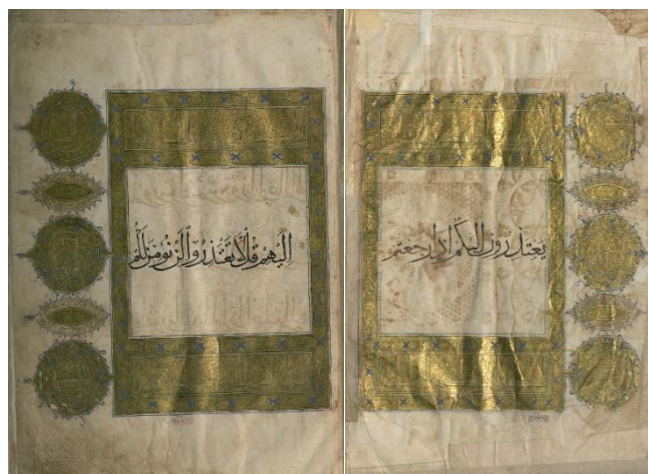 يعتذرون اليكم اذا رجعتم
اليهم قل لا تعتذروا لن نؤمن لكم